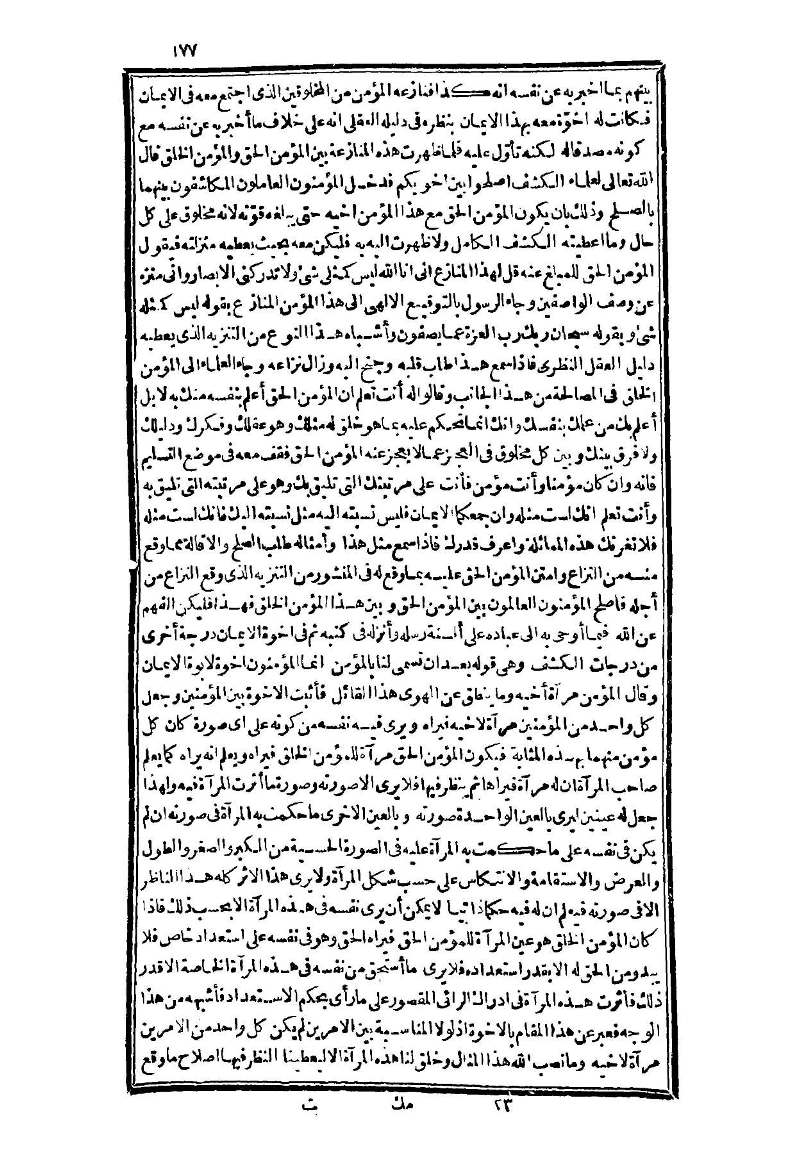 ١٧٧
بينهم بما أخبر به عن نفسه انه كذا فنازعه المؤمن من المخلوقين الذى اجتمع معه فى الايمان
فكانت له اخوّة معه بهذا الايمان بنظره فى دليله العقلى انه على خلاف ما أخبر به عن نفسه مع
كونه مصدقاله لكنه تأوّل عليه فلما ظهرت هذه المنازعة بين المؤمن الحق والمؤمن الخلق قال
الله تعالى لعلماء الكشف اصلحوا بين اخويكم فدخل المؤمنون العاملون المكاشفون بينهما
بالصلح وذلك بان يكون المؤمن الحق مع هذا المؤمن اخيه حتى يبلغه قوّته لانه مخلوق على كل
حال وما اعطيته الكشف الكامل ولا ظهرت اليه به فليكن معه بحيث يعطيه منزلته فيقول
المؤمن الحق للمبلغ عنه قل لهذا المنازع انى انا الله ليس كمثلى شئ ولا تدركنى الابصار وانى منزه
عن وصف الواصفين وجاء الرسول بالتوقيع الالهى الى هذا المؤمن المنازع بقوله ليس كمثله
شئ وبقوله سبحان ربك رب العزة عما يصفون وأشباه هذا النوع من التنزيه الذى يعطيه
دليل العقل النظرى فاذا سمع هذا طاب قلبه وجنح اليه وزال نزاعه وجاء العلماء الى المؤمن
الخلق فى المصالحة من هذا الجانب وقالوا له أنت تعلم ان المؤمن الحق أعلم بنفسه منك به لا بل
أعلم بك من علمك بنفسك وانك انما تحكم عليه بما هو خلق له مثلك وهو عقلك وفكرك ودليلك
ولا فرق بينك وبين كل مخلوق فى العجز عما لا يعجز عنه المؤمن الحق فقف معه فى موضع التسليم
فانه وان كان مؤمنا وأنت مؤمن فأنت على مرتبتك التى تليق بك وهو على مرتبته التى تليق به
وأنت تعلم انك لست مثله وان جمعكما الايمان فليس نسبته اليه مثل نسبته اليك فانك لست مثله
فلا تغرنك هذه المماثلة واعرف قدرك فاذا سمع مثل هذا وأمثاله طلب الصلح والاقالة مما وقع
منه من النزاع وامتن المؤمن الحق عليه بما وقع له فى المنشور من التنزيه الذى وقع النزاع من
أجله فاصلح المؤمنون العالمون بين المؤمن الحق وبين هذا المؤمن الخلق فهذا فليكن الفهم
عن الله فيما أوحى به الى عباده على ألسنة رسله وأنزله فى كتبه ثم فى اخوة الايمان درجة أخرى
من درجات الكشف وهى قوله بعد ان تسمى لنا بالمؤمن انما المؤمنون اخوة لابوة الايمان
وقال المؤمن مرآة أخيه وما ينطق عن الهوى هذا القائل فأثبت الاخوة بين المؤمنين وجعل
كل واحد من المؤمنين مرآة لاخيه فيراه ويرى فيه نفسه من كونه على اى صورة كان كل
مؤمن منهما بهذه المثابة فيكون المؤمن الحق مرآة للمؤمن الخلق فيراه ويعلم انه يراه كما يعلم
صاحب المرآة ان له مرآة فيراها ثم ينظر فيها فلا يرى الا صورته وصورة ما أثرت المرآة فيه ولهذا
جعل له عينين ليرى بالعين الواحدة صورته وبالعين الاخرى ما حكمت به المرآة فى صورته ان لم
يكن فى نفسه على ما حكمت به المرآة عليه فى الصورة الحسية من الكبر والصغر والطول
والعرض والاستقامة والانتكاس على حسب شكل المرآة ولا يرى هذا الاثر كله هذا الناظر
الا فى صورته فيعلم ان له فيه حكما ذاتيا لا يمكن أن يرى نفسه فى هذه المرآة الا بحسب ذلك فاذا
كان المؤمن الخلق هو عين المرآة للمؤمن الحق فيراه الحق وهو فى نفسه على استعداد خاص فلا
يبدو من الحق له الا بقدر استعداده فلا يرى ما أستحق من نفسه فى هذه المرآة الخاصة الا قدر
ذلك فأثرت هذه المرآة فى ادراك الرائى المقصور على ما رأى بحكم الاستعداد فأشبهه من هذا
الوجه فعبر عن هذا المقام بالاخوة اذ لولا المناسبة بين الامرين لم يكن كل واحد من الامرين
مرآة لاخيه وما نصب الله هذا المثال وخلق لنا هذه المرآة الا ليعطينا النظر فيها اصلاح ما وقع
٢٣ مك ت